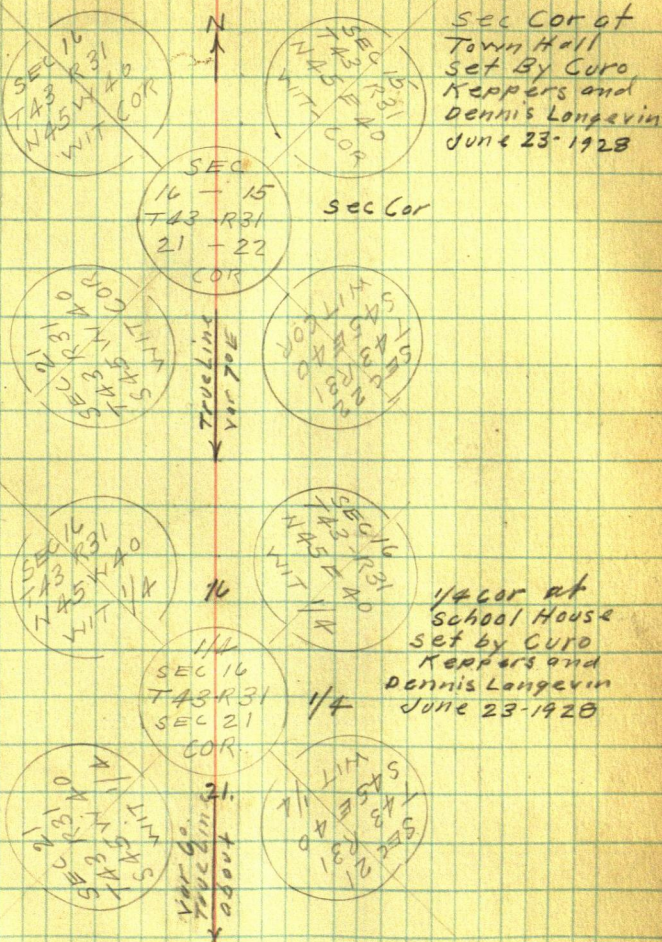 N
SEC 16
T43 R31
N45 W 40
WIT COR
SEC 15
T43 R31
N45 E 40
WIT COR
Sec Cor at
Town Hall
set By Curo
Keppers and
Dennis Longevin
June 23-1928
SEC
16 - 15
T43 R31
21 - 22
COR
sec Cor
SEC 21
T43 R31
S45 W 40
WIT COR
SEC 22
T43 R31
S45 E 40
WIT COR
True Line
var 70E
SEC 16
T43 R31
N45 W 40
WIT 1/4
SEC 16
T43-R31
N45 E 40
WIT 1/4
16
1/4 cor at
School House
set by Curo
Keppers and
Dennis Langevin
June 23-1928
1/4
SEC 16
T43-R31
SEC 21
COR.
1/4
21.
SEC 21
T43 R31
S45 W 40
WIT 1/4
SEC 21
T43 R31
S45 E 40
WIT 1/4
True Line
about